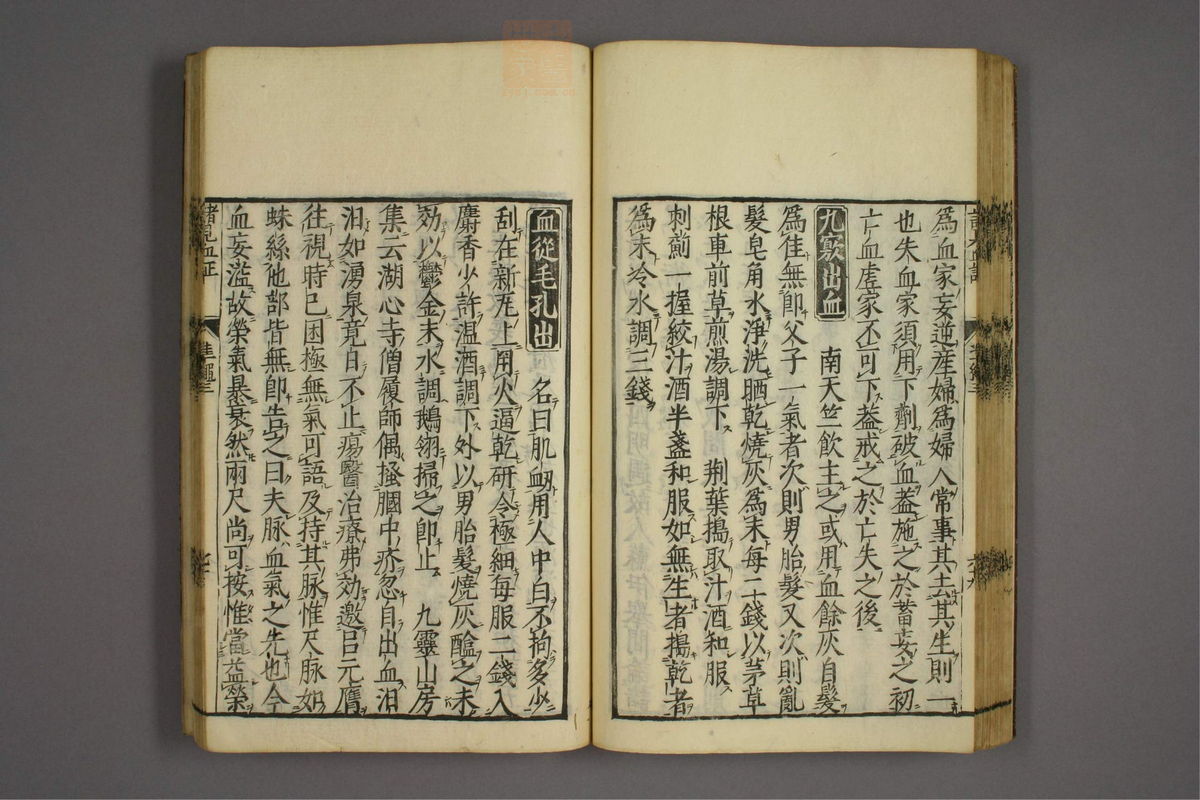 爲血家妄逆産婦爲婦人常事其去其生則一
也失血家須用下劑破血蓋施之於蓄妄之初
亡血虛家不可下蓋戒之於亡失之後
九竅出血 南天竺飲主之或用血餘灰自髮
爲佳無卽父子一氣者次則男胎髮又次則亂
髮皂角水淨洗晒乾燒灰爲末每二錢以茅草
根車前草煎湯調下 荆葉搗取汁酒和服
刺薊一握絞汁酒半盞和服如無生者搗乾者
爲末冷水調三錢
血從毛孔出 名曰肌衂用人中白不拘多少
刮在新瓦上用火逼乾研令極細每服二錢入
麝香少許温酒調下外以男胎髮燒灰醘之未
効以鬱金末水調鵝翎掃之卽止 九靈山房
集云湖心寺僧履師偶搔膕中疥忽自出血汩
汩如湧泉竟日不止瘍醫治療弗効邀吕元膺
往視時已困極無氣可語及持其脉惟尺脉如
蛛絲他部皆無卽告之曰夫脉血氣之先也今
血妄溢故榮氣暴衰然兩尺尚可按惟當益榮
諸見血証